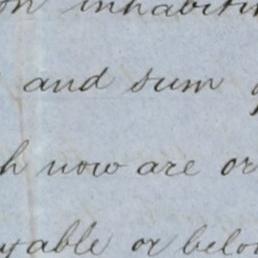 on inhabitin
and sum
h now are or
yable or belo